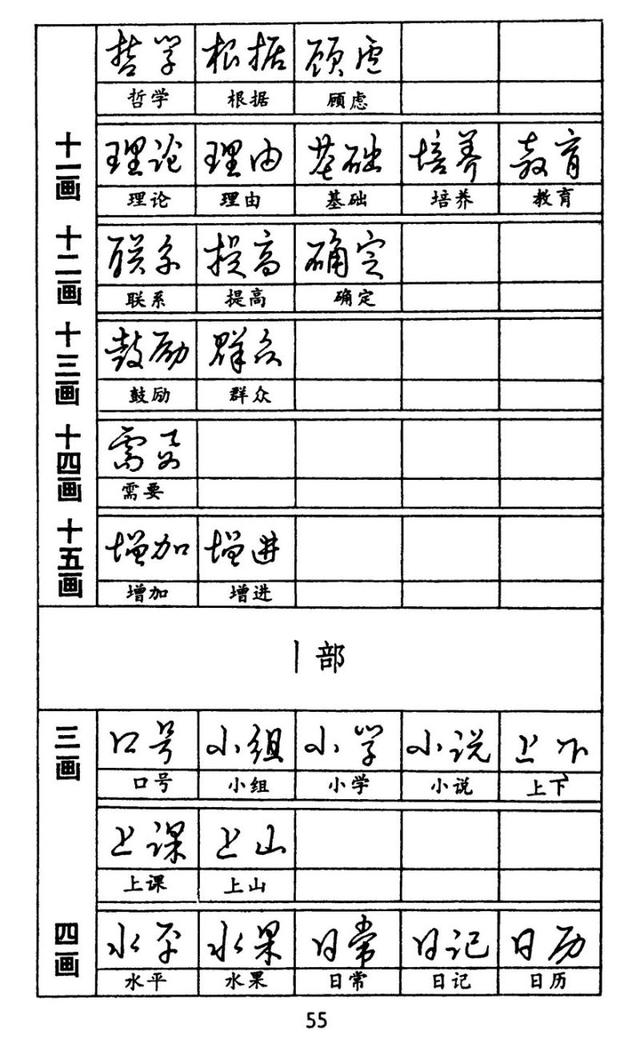 哲学 根据 顾虑
哲学 根据 顾虑
十一画
理论 理由 基础 培养 教育
理论 理由 基础 培养 教育
十二画
联系 提高 确定
联系 提高 确定
十三画
鼓励 群众
鼓励 群众
十四画
需要
需要
十五画
增加 增进
增加 增进
丨部
三画
口号 小组 小学 小说 上下
口号 小组 小学 小说 上下
上课 上山
上课 上山
四画
水平 水果 日常 日记 日历
水平 水果 日常 日记 日历
55